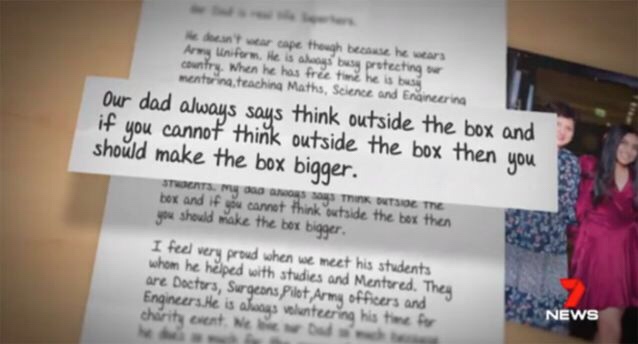 our Dad is real life Superhero.
He doesn't wear cape though because he wears
Army Uniform. He is always busy protecting our
country. When he has free time he is busy
mentoring,teaching Maths, Science and Engineering
Our dad always says think outside the box and
if you cannot think outside the box then you
should make the box bigger.
students. My dad always says think outside the
box and if you cannot think outside the box then
you should make the box bigger.
I feel very proud when we meet his students
whom he helped with studies and Mentored. They
are Doctors, Surgeons,Pilot,Army officers and
Engineers.He is always volunteering his time for
charity event. We love our Dad so much because
he does so much for the
7
NEWS